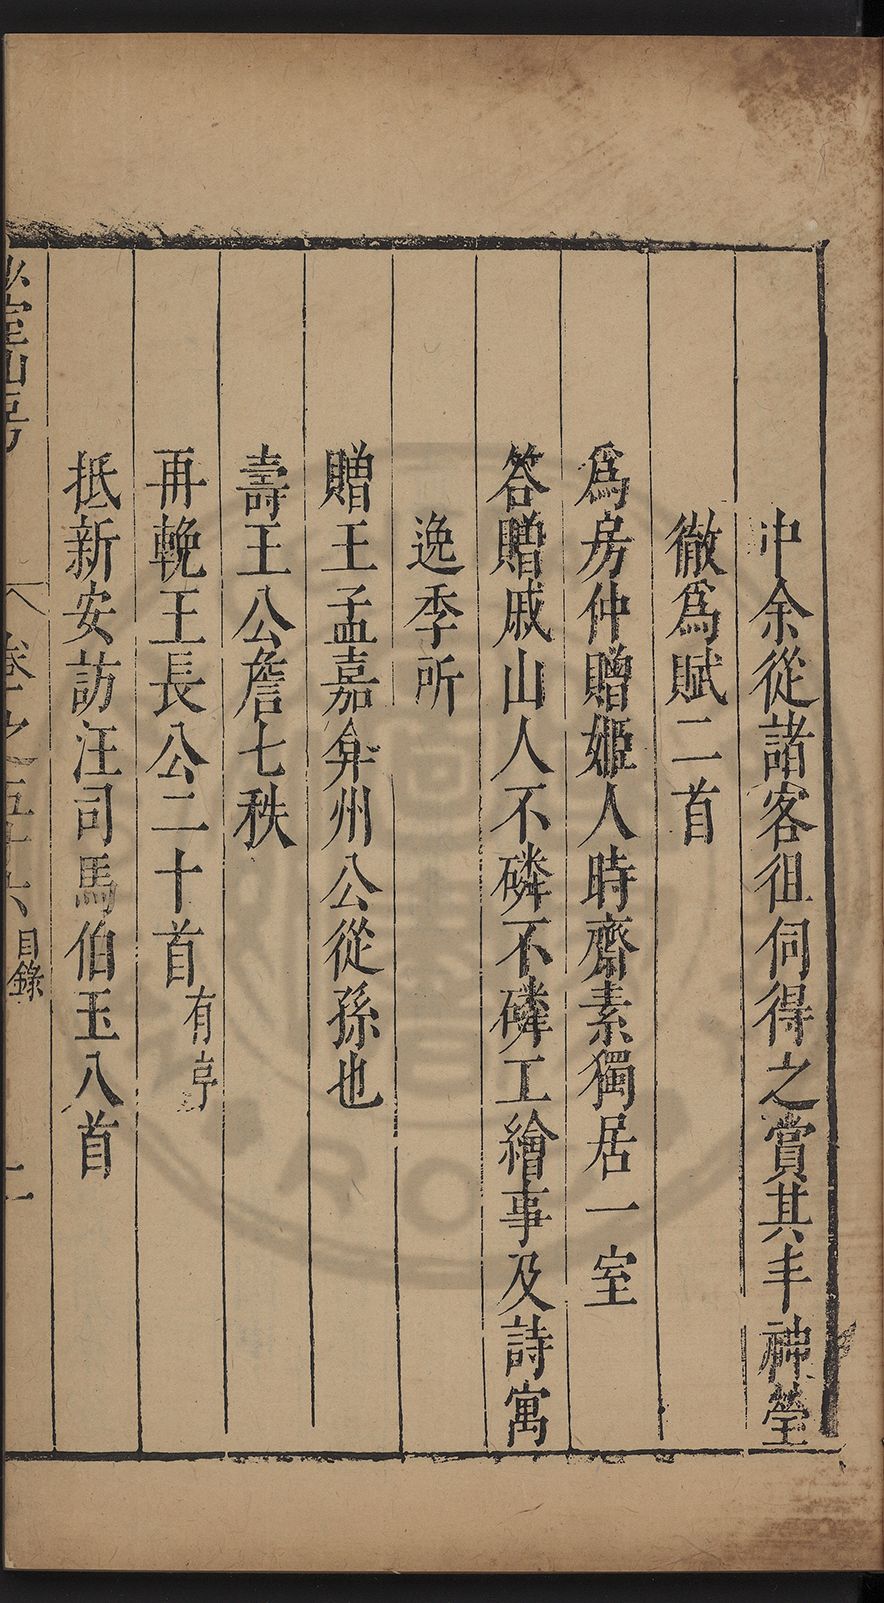 中余從諸客徂伺得之賞其丰神瑩
徹為賦二首
為房仲贈姬人時齋素獨居一室
答贈戚山人不磷不磷工繪事及詩寓
逸季所
贈王孟嘉弇州公從孫也
壽王公詹七秩
再輓王長公二十首有序
抵新安訪汪司馬伯玉八首
少室山房 卷之五十六目錄 二